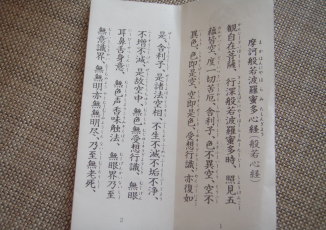 摩訶般若波羅蜜多心経（般若心経）
観自在菩薩、行深般若波羅蜜多時、照見五
蘊皆空、度一切苦厄、舎利子、色不異空、空不
異色、色即是空、空即是色、受想行識、亦復如
是、舎利子、是諸法空相、不生不滅不垢不浄、
不増不減、是故空中、無色無受想行識、無眼
耳鼻舌身意、無色声香味触法、無眼界乃至
無意識界、無無明亦無無明尽、乃至無老死、
1
2